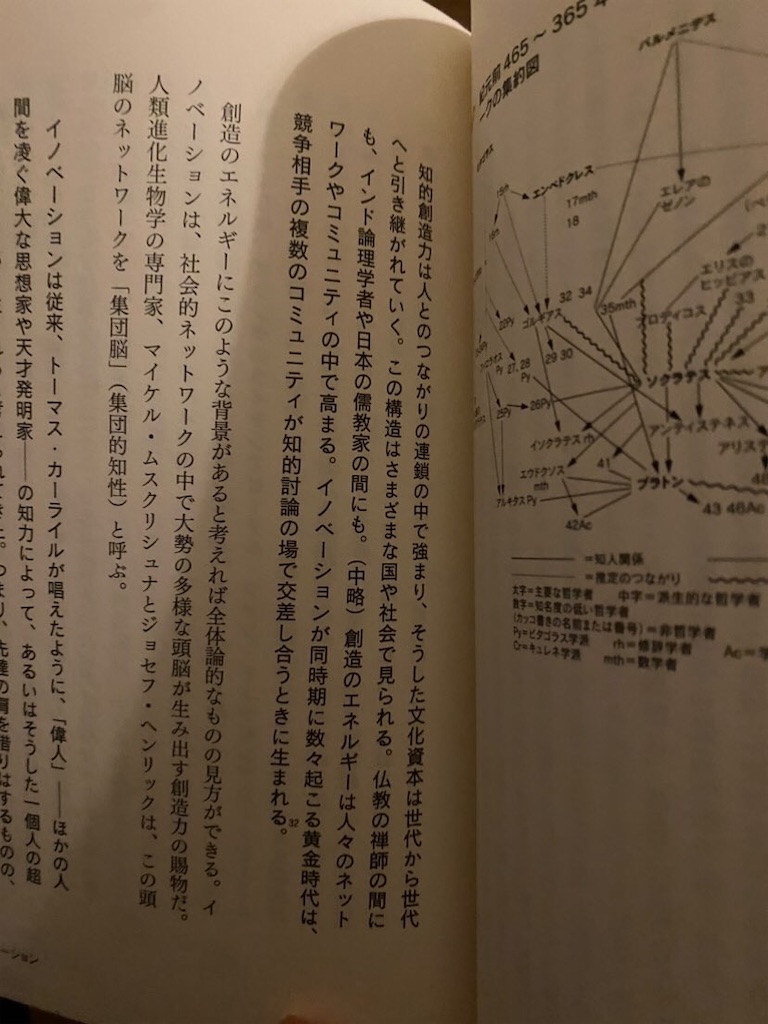 紀元前465～365年
ークの集約図
パルメニデス
エンペドクレス
17mth
18
エレアの
ゼノン
エリスの
ヒッピアス
33
32 34
35mth
ゴルギアス
プロディコス
22Py
29 30
27, 28
Py
ソクラテス
25Py
26Py
イソクラテス rh
アンティステネス
41
エウドクソス
mth
プラトン
43 46Ac
アルキタス Py
42Ac
＝知人関係
＝推定のつながり
太字＝主要な哲学者 中字＝派生的な哲学者
数字＝知名度の低い哲学者
(カッコ書きの名前または番号)＝非哲学者
Py＝ピタゴラス学派 rh＝修辞学者 Ac＝学
Cr＝キュレネ学派 mth＝数学者
知的創造力は人とのつながりの連鎖の中で強まり、そうした文化資本は世代から世代
へと引き継がれていく。この構造はさまざまな国や社会で見られる。仏教の禅師の間に
も、インド論理学者や日本の儒教家の間にも。（中略）創造のエネルギーは人々のネット
ワークやコミュニティの中で高まる。イノベーションが同時期に数々起こる黄金時代は、
競争相手の複数のコミュニティが知的討論の場で交差し合うときに生まれる。32
創造のエネルギーにこのような背景があると考えれば全体論的なものの見方ができる。イ
ノベーションは、社会的ネットワークの中で大勢の多様な頭脳が生み出す創造力の賜物だ。
人類進化生物学の専門家、マイケル・ムスクリシュナとジョセフ・ヘンリックは、この頭
脳のネットワークを「集団脳」（集団的知性）と呼ぶ。
イノベーションは従来、トーマス・カーライルが唱えたように、「偉人」――ほかの人
間を凌ぐ偉大な思想家や天才発明家――の知力によって、あるいはそうした一個人の超
つまり、先達の肩を借りはするものの、
ーション